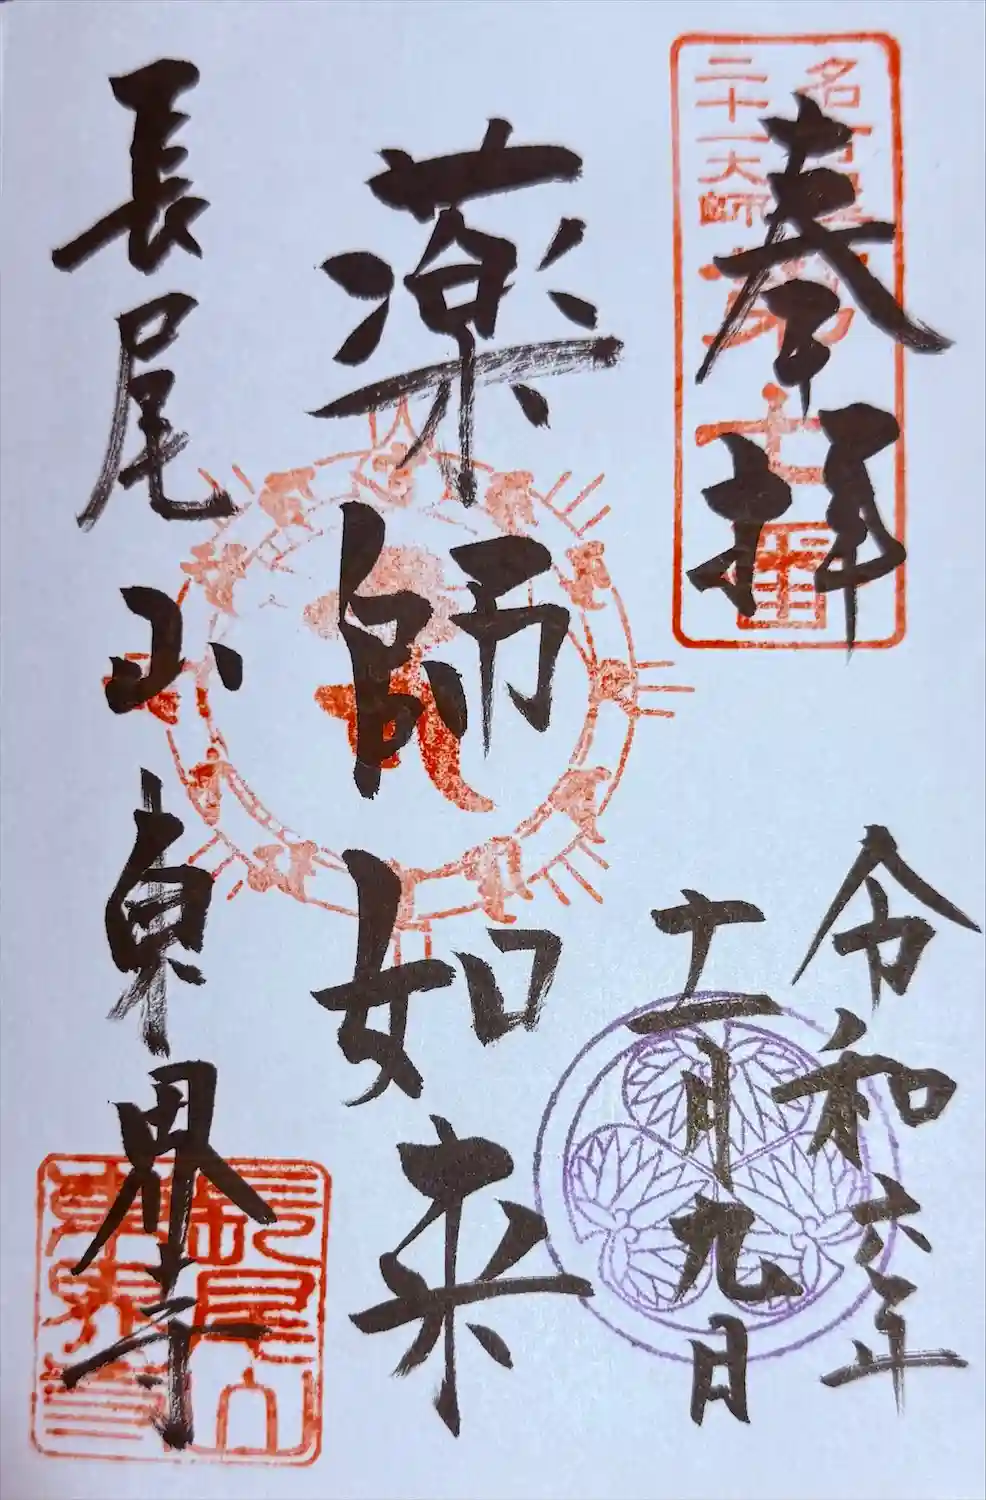 奉拝
名古屋
二十一大師
第十七番
令和六年
十二月九日
薬師如来
長尾山東界寺
長尾山
東界寺